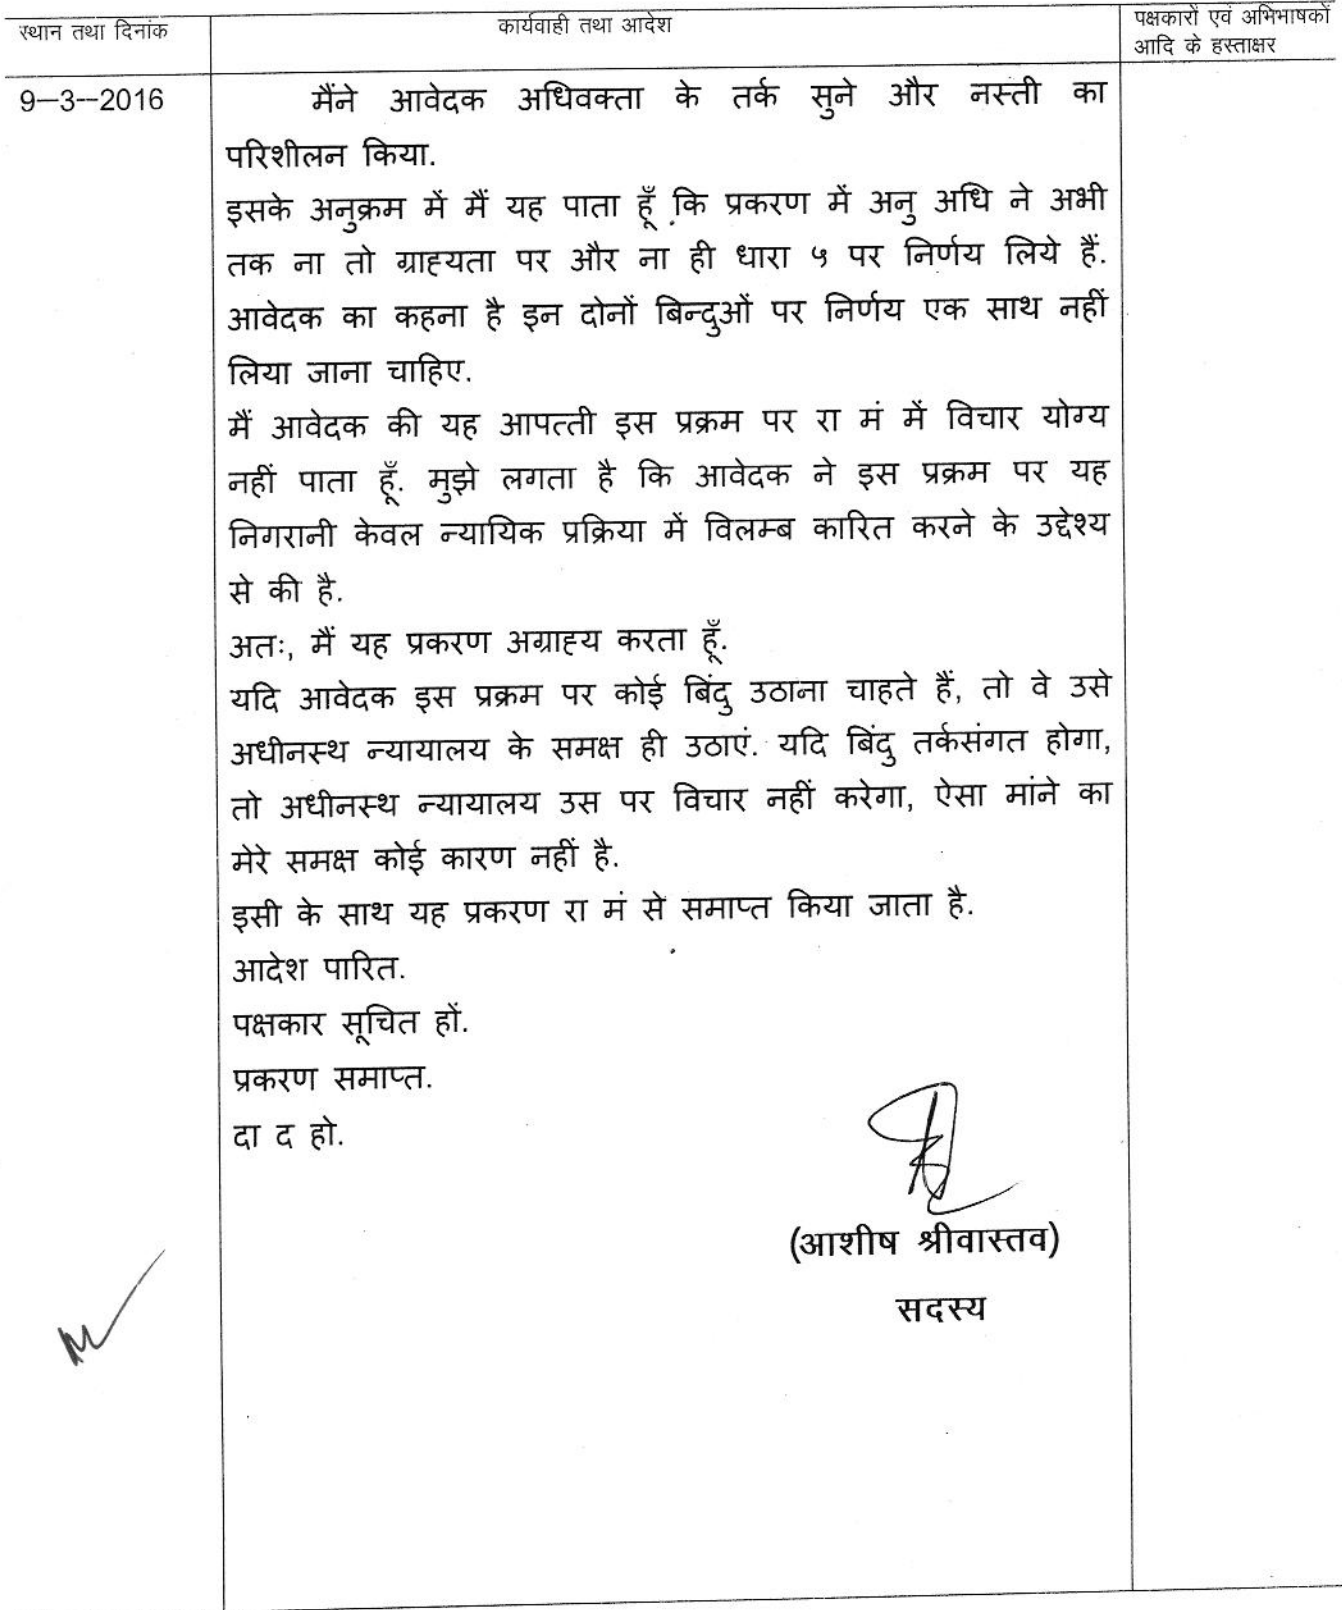 स्थान तथा दिनांक
कार्यवाही तथा आदेश
पक्षकारों एवं अभिभाषकों
आदि के हस्ताक्षर
9-3-2016
मैंने आवेदक अधिवक्ता के तर्क सुने और नस्ती का
परिशीलन किया.
इसके अनुक्रम में मैं यह पाता हूँ कि प्रकरण में अनु अधि ने अभी
तक ना तो ग्राह्यता पर और ना ही धारा ५ पर निर्णय लिये हैं.
आवेदक का कहना है इन दोनों बिन्दुओं पर निर्णय एक साथ नहीं
लिया जाना चाहिए.
मैं आवेदक की यह आपत्ती इस प्रक्रम पर रा मं में विचार योग्य
नहीं पाता हूँ. मुझे लगता है कि आवेदक ने इस प्रक्रम पर यह
निगरानी केवल न्यायिक प्रक्रिया में विलम्ब कारित करने के उद्देश्य
से की है.
अतः, मैं यह प्रकरण अग्राह्य करता हूँ.
यदि आवेदक इस प्रक्रम पर कोई बिंदु उठाना चाहते हैं, तो वे उसे
अधीनस्थ न्यायालय के समक्ष ही उठाएं. यदि बिंदु तर्कसंगत होगा,
तो अधीनस्थ न्यायालय उस पर विचार नहीं करेगा, ऐसा मांने का
मेरे समक्ष कोई कारण नहीं है.
इसी के साथ यह प्रकरण रा मं से समाप्त किया जाता है.
आदेश पारित.
पक्षकार सूचित हों.
प्रकरण समाप्त.
दा द हो.
(आशीष श्रीवास्तव)
सदस्य